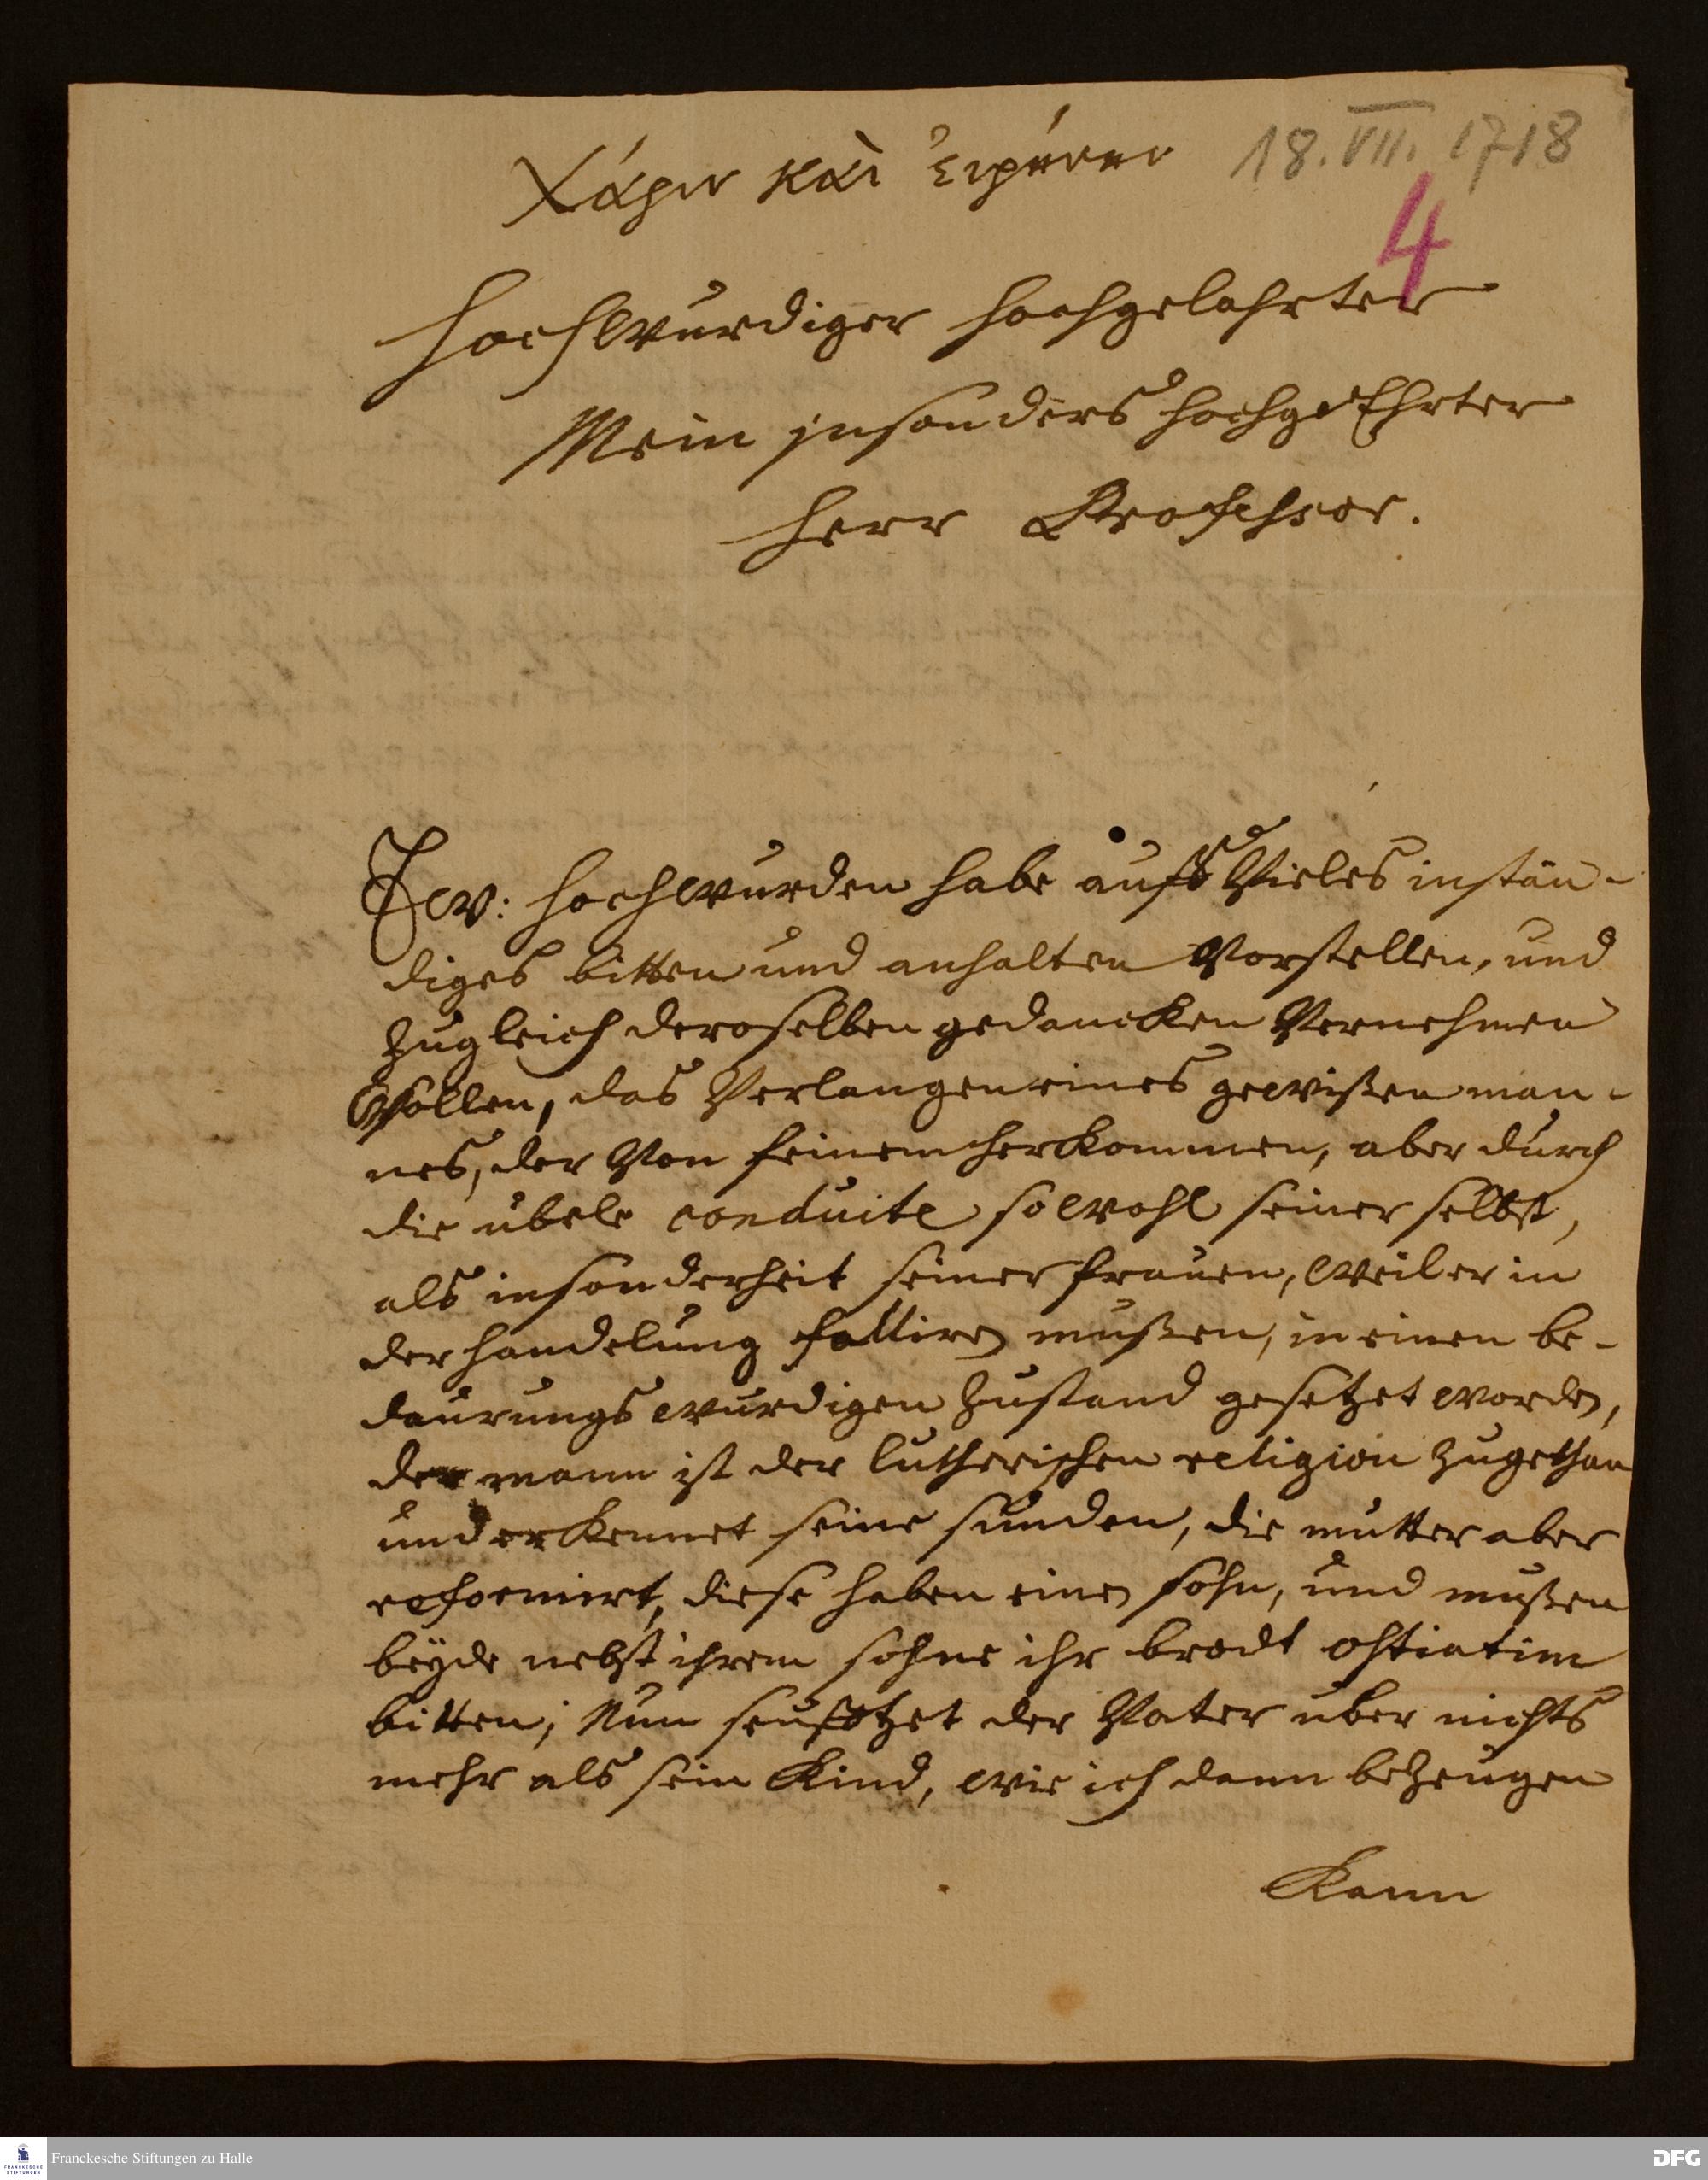 Χάριν καὶ Ἐιρήνην 18. VII. 1718
4
Hochwürdiger Hochgelahrter
Mein insonders HochgeEhrter
Herr Professor.
Ew: Hochwürden habe auffs Vieles instän-
diges bitten und anhalten Vorstellen, und
zugleich deroselben gedancken Vernehmen
Wollen, das Verlangen eines gewißen man-
nes, der Von feinem herkommen, aber durch
die übele conduite sowohl seiner selbst,
als insonderheit seiner frauen, weil er in
der handelung falliren mußen, in einen be-
daurungs würdigen Zustand gesetzet worden,
der mann ist der lutherischen religion zugethan
und erkennet seine sünden, die mutter aber
reformirt, diese haben einen sohn, und mußen
beyde nebst ihrem sohne ihr brodt ostiatim
bitten; Nun seufftzet der Vater über nichts
mehr als sein Kind, wie ich dann bezeugen
Kann
FRANCKESCHE STIFTUNGEN
Franckesche Stiftungen zu Halle
DFG